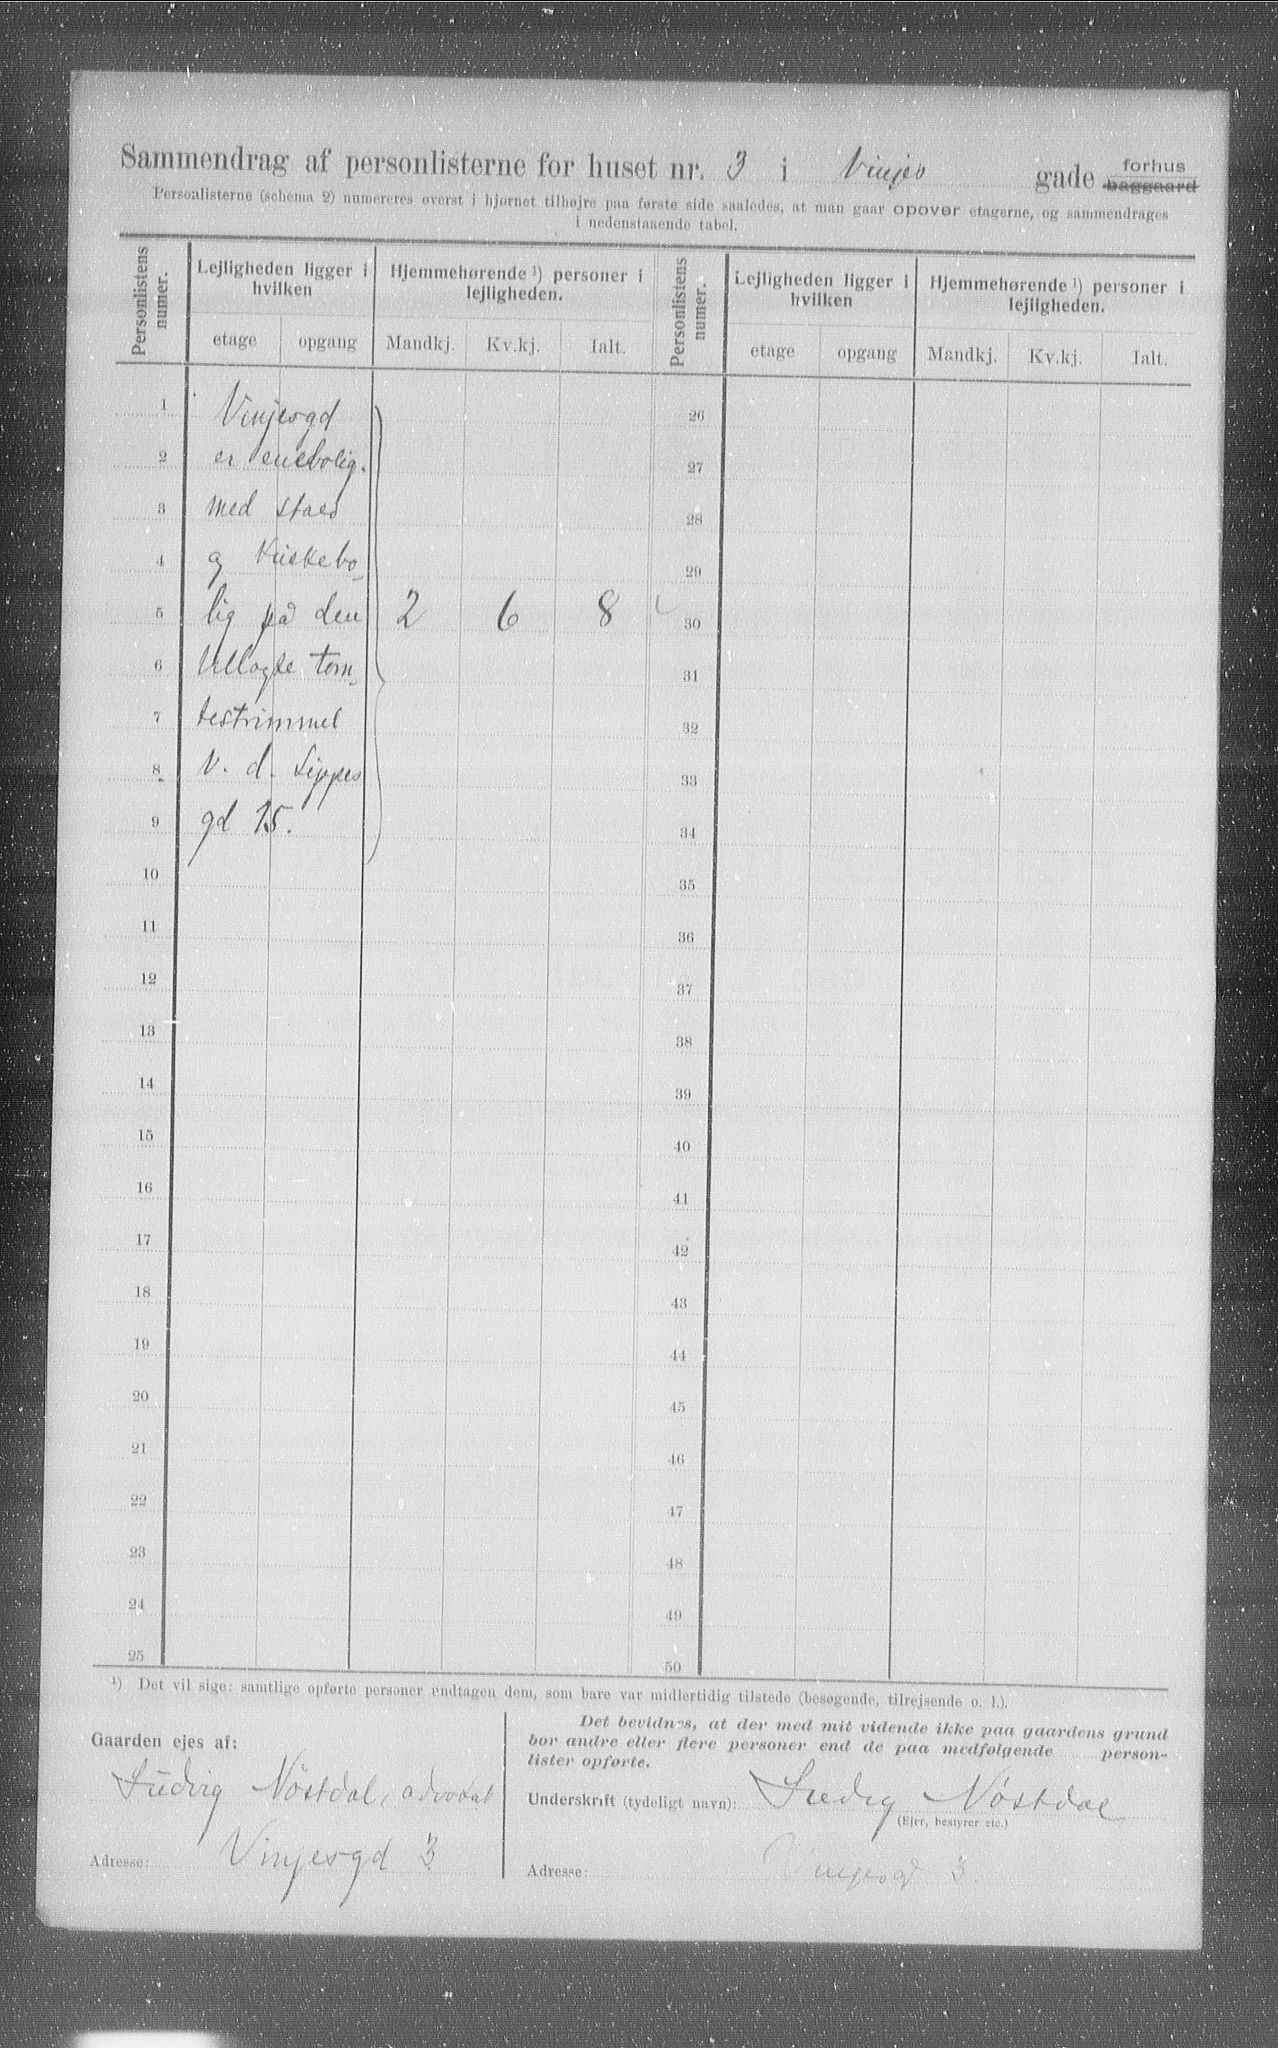 Sammendrag af personlisterne for huset nr. 3 i Vinjes gade forhus baggaard
Personlisterne (schema 2) numereres øverst i hjørnet tilhøjre paa første side saaledes, at man gaar opover etagerne, og sammendrages
i nedenstaaende tabel.
Personlistens numer. Lejligheden ligger i hvilken Hjemmehørende ¹) personer i lejligheden. Personlistens numer. Lejligheden ligger i hvilken Hjemmehørende ¹) personer i lejligheden.
etage opgang Mandkj. Kv.kj. Ialt. etage opgang Mandkj. Kv.kj. Ialt.
1 Vinjesgd 26
2 er enebolig. 27
3 med stald 28
4 og Kuskebo- 29
5 lig på den 2 6 8 30
6 tillagte tom- 31
7 testrimmel 32
8 v. d. Lippes 33
9 gd 15. 34
10 35
11 36
12 37
13 38
14 39
15 40
16 41
17 42
18 43
19 44
20 45
21 46
22 47
23 48
24 49
25 50
¹) Det vil sige: samtlige opførte personer undtagen dem, som bare var midlertidig tilstede (besøgende, tilrejsende o. l.).
Gaarden ejes af:
Ludvig Nöstdal, advokat
Adresse: Vinjesgd 3
Det bevidnes, at der med mit vidende ikke paa gaardens grund
bor andre eller flere personer end de paa medfølgende person-
lister opførte.
Underskrift (tydeligt navn): Ludvig Nöstdal
(Ejer, bestyrer etc.)
Adresse: Vinjesgd 3.